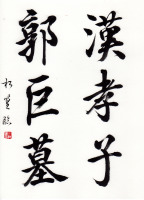 漢孝子
郭巨墓